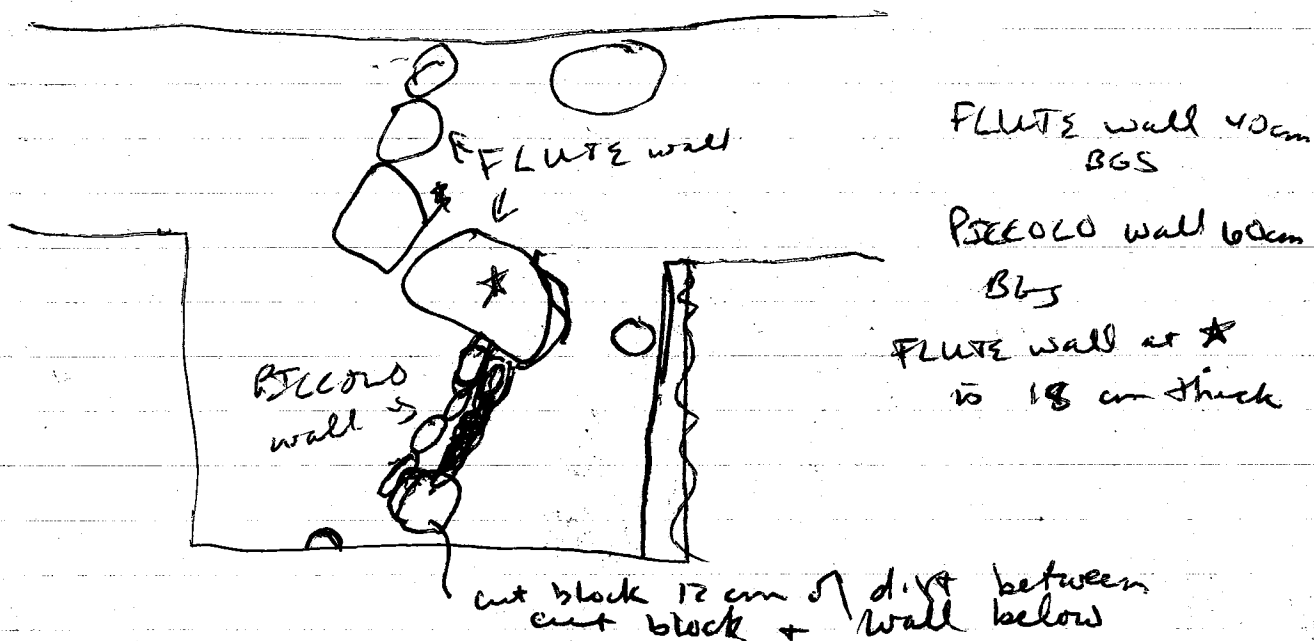 FLUTE wall
FLUTE wall 40cm
BGS
PICCOLO wall 60cm
BGS
FLUTE wall at ★
is 18 cm thick
PICCOLO
wall
cut block 12 cm of dirt between
cut block + wall below